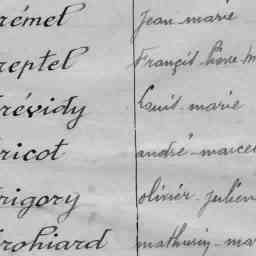 rémel Jean marie
reptel Françis
révidy Louis marie
ricot andré marcel
rigory olivier julien
rohiard mathurin mar